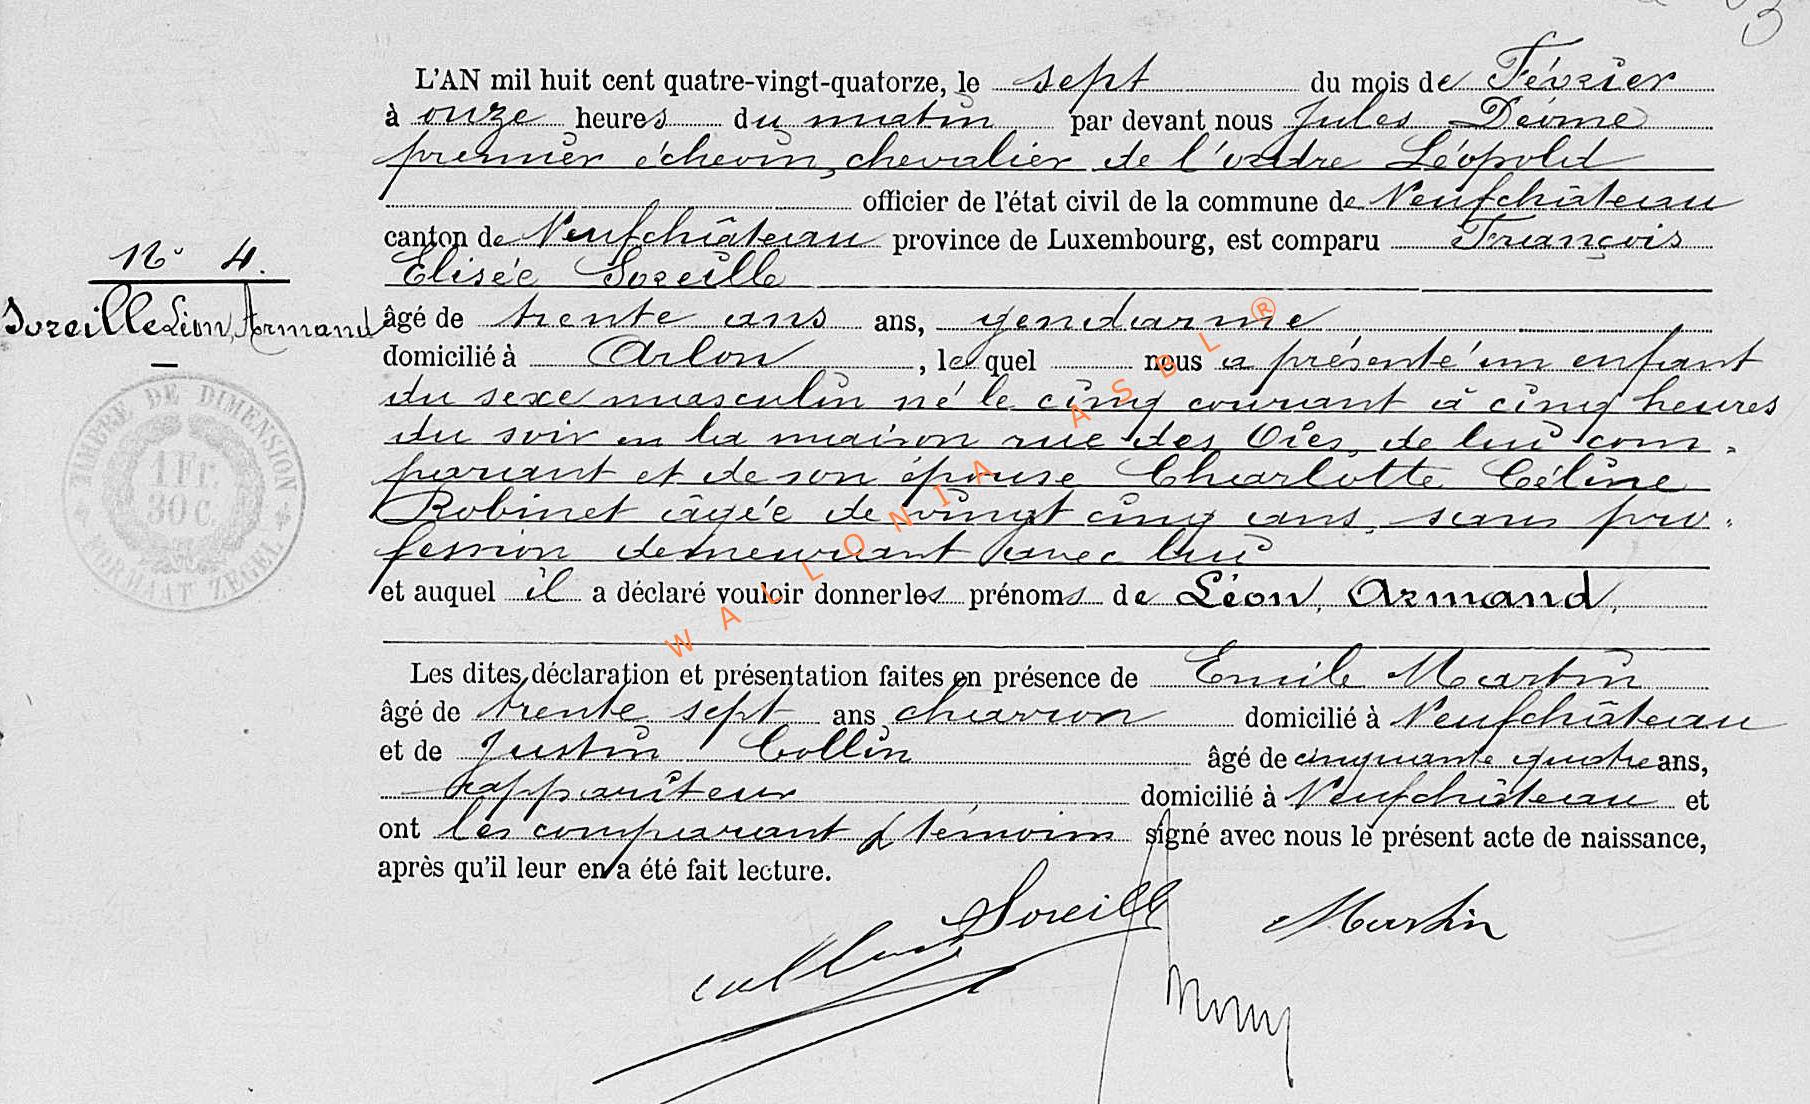 3
L'AN mil huit cent quatre-vingt-quatorze, le sept du mois de Février
à onze heures du matin par devant nous Jules Déome
premier échevin, chevalier de l'ordre Léopold
officier de l'état civil de la commune de Neufchâteau
canton de Neufchâteau province de Luxembourg, est comparu François
Elisée Soreille
N° 4.
Soreille Léon, Armand
âgé de trente ans ans, gendarme
domicilié à Arlon, lequel nous a présenté un enfant
du sexe masculin né le cinq courant à cinq heures
du soir en la maison rue des Oies, de lui com-
parant et de son épouse Charlotte Céline
Robinet âgée de vingt cinq ans, sans pro-
fession demeurant avec lui
et auquel il a déclaré vouloir donner les prénoms de Léon, Armand,
Les dites déclaration et présentation faites en présence de Emile Martin
âgé de trente sept ans charron domicilié à Neufchâteau
et de Justin Collin âgé de cinquante quatre ans,
appariteur domicilié à Neufchâteau et
ont les comparant & témoins signé avec nous le présent acte de naissance,
après qu'il leur en a été fait lecture.
Soreille
Martin
collin
TIMBRE DE DIMENSION
1 Fr.
30 C.
FORMAAT ZEGEL
WALLONIA ASBL ®